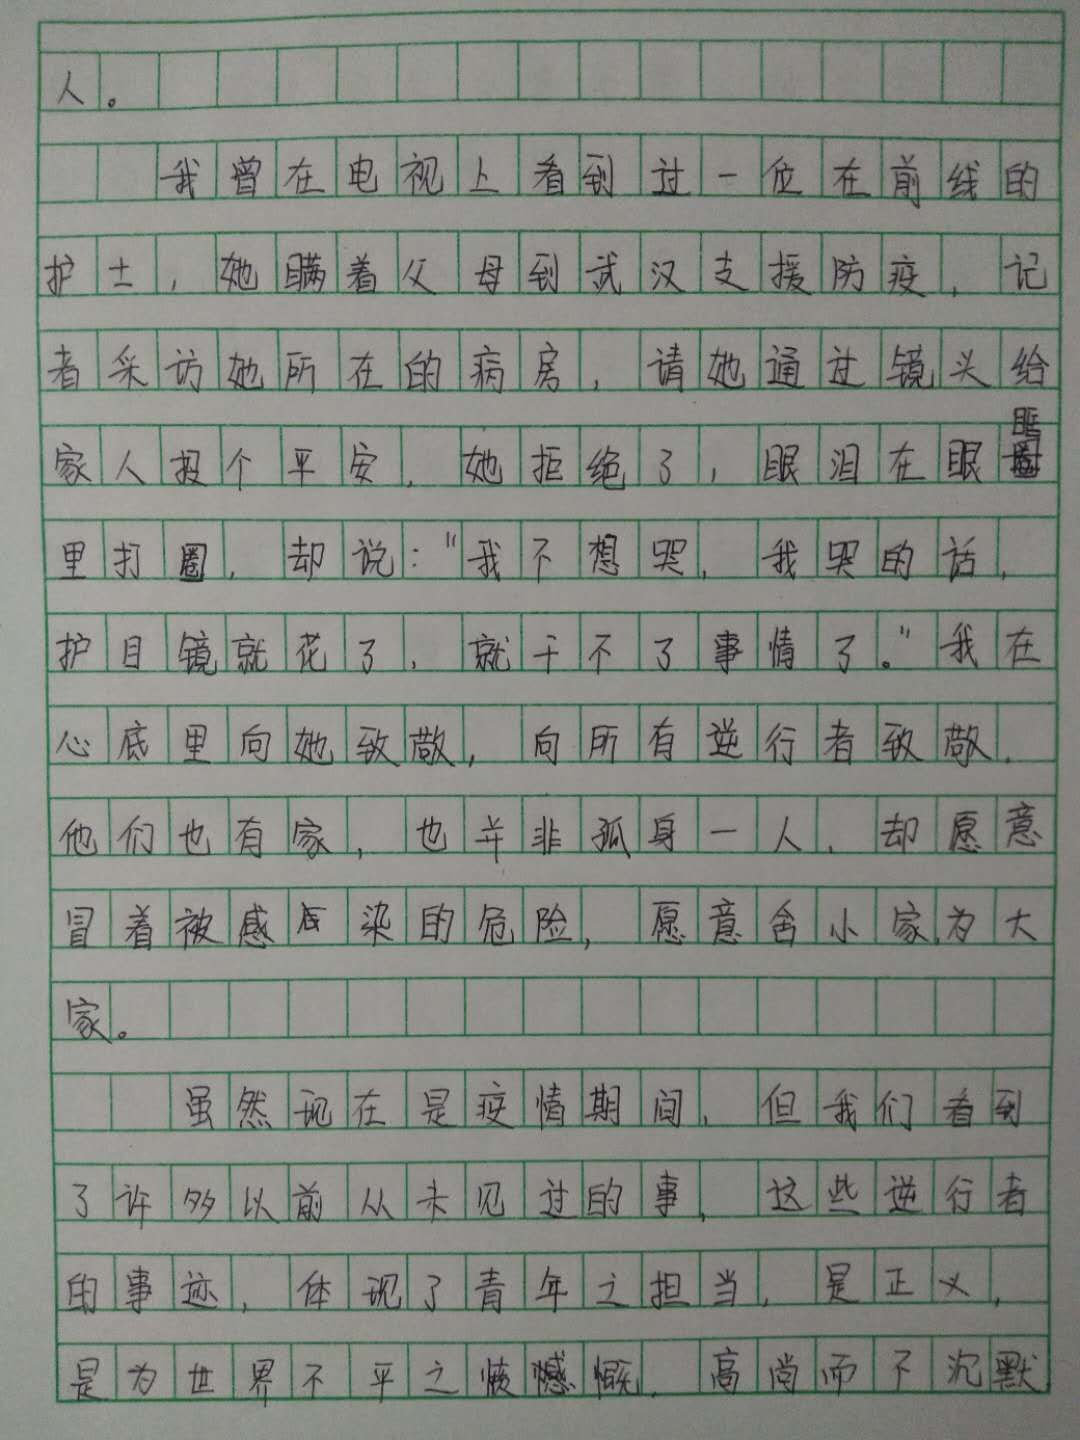 人。
我曾在电视上看到过一位在前线的
护士，她瞒着父母到武汉支援防疫，记
者采访她所在的病房，请她通过镜头给
家人报个平安，她拒绝了，眼泪在眼眶
里打圈，却说："我不想哭，我哭的话，
护目镜就花了，就干不了事情了。"我在
心底里向她致敬，向所有逆行者致敬，
他们也有家，也并非孤身一人，却愿意
冒着被感染的危险，愿意舍小家，为大
家。
虽然现在是疫情期间，但我们看到
了许多以前从未见过的事，这些逆行者
的事迹，体现了青年之担当，是正义，
是为世界不平之憾慨，高尚而不沉默